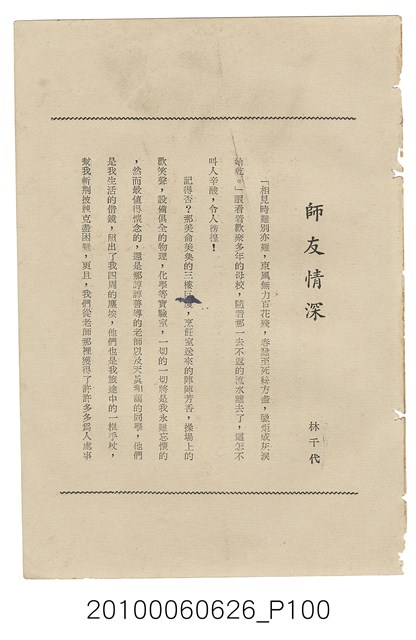 師友情深
林千代
「相見時難別亦難，東風無力百花殘，春蠶至死絲方盡，蠟炬成灰淚
始乾。」眼看着歡聚多年的母校，隨着那一去不返的流水離去了，這怎不
叫人辛酸，令人徬徨！
記得否？那美侖美奐的三樓巨廈，烹飪室送來的陣陣芳香，操場上的
歡笑聲，設備俱全的物理，化學等實驗室，一切的一切將是我永難忘懷的
，然而最值得懷念的，還是那諄諄善導的老師以及天眞和藹的同學，他們
是我生活的借鏡，照出了我四周的塵埃，他們也是我旅途中的一根手杖，
幫我斬荆披棘克盡困難，更且，我們從老師那裡獲得了許許多多爲人處事
20100060626_P100